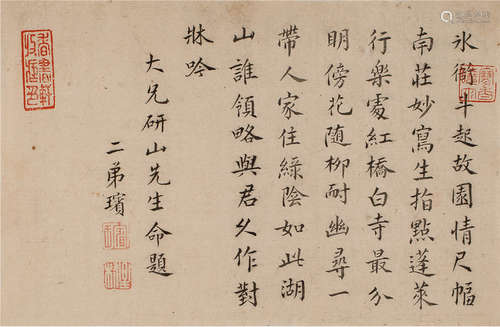 氷衙斗起故園情尺幅
南莊妙寫生指點蓬萊
行樂處紅橋白寺最分
明傍花隨柳耐幽尋一
帶人家住綠陰如此湖
山誰領略與君久作對
牀吟
大兄研山先生命題
二弟璸